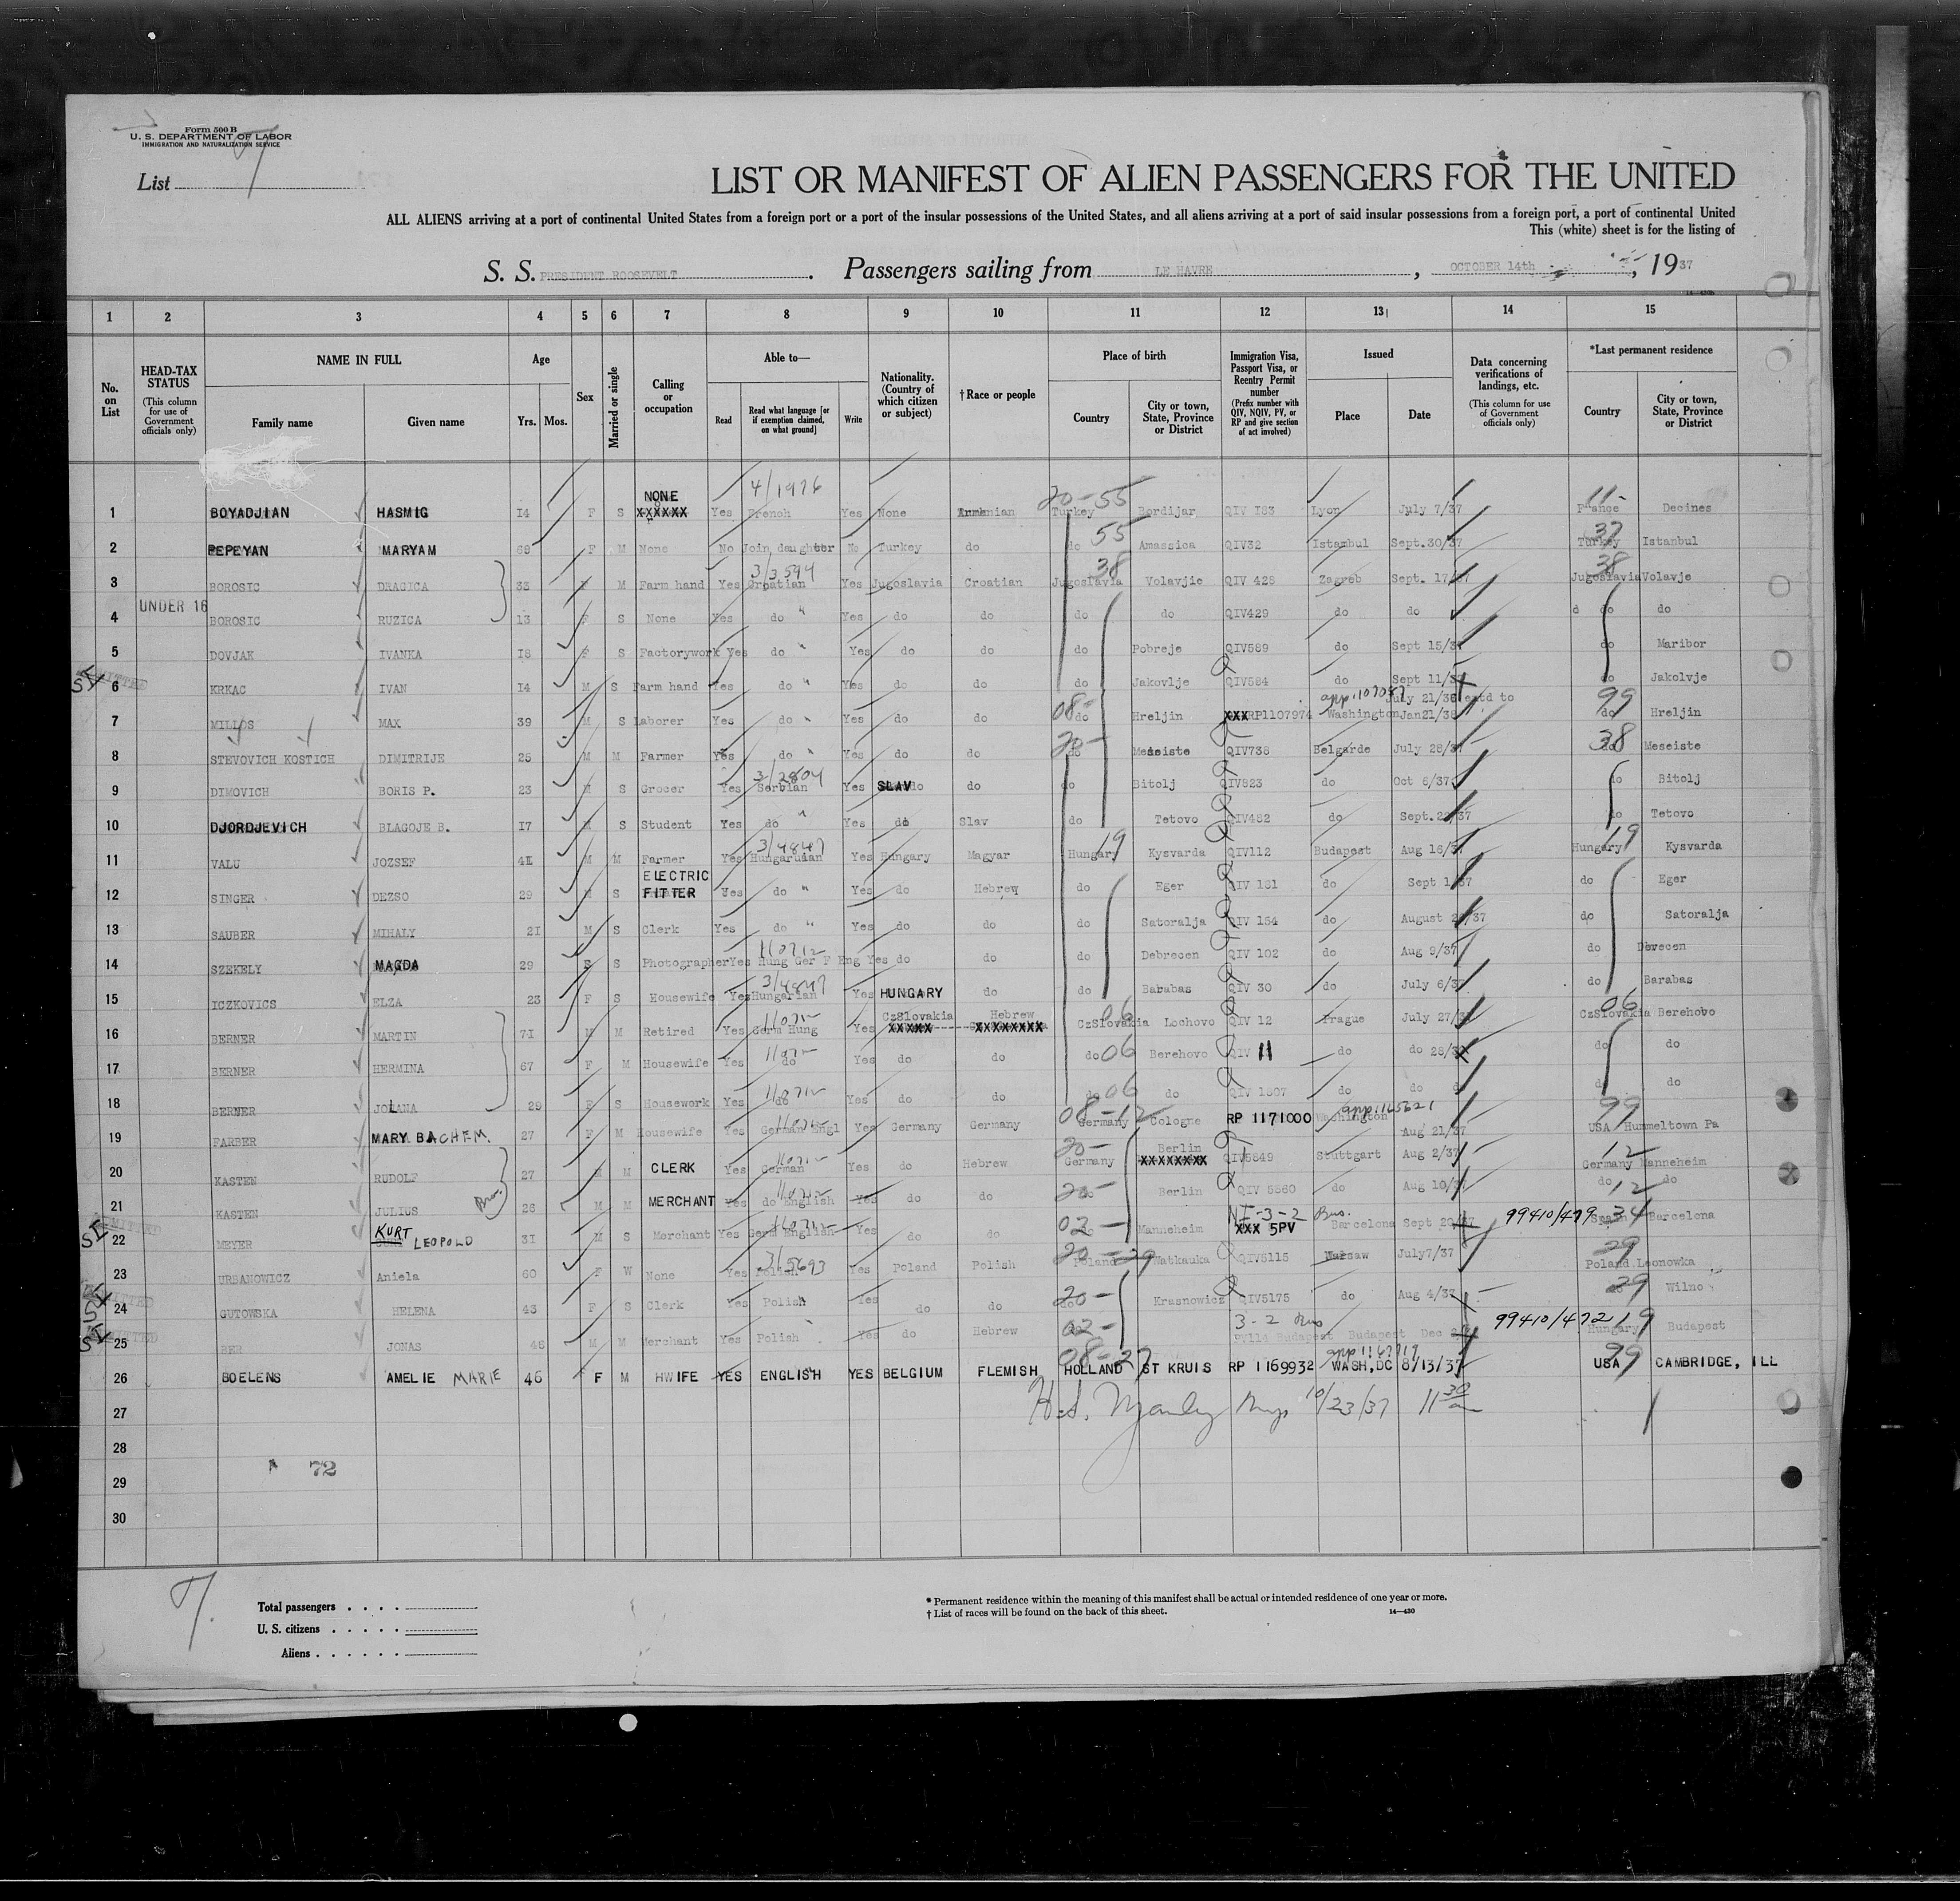 Form 500 B
U. S. DEPARTMENT OF LABOR
IMMIGRATION AND NATURALIZATION SERVICE
List 7
LIST OR MANIFEST OF ALIEN PASSENGERS FOR THE UNITED
ALL ALIENS arriving at a port of continental United States from a foreign port or a port of the insular possessions of the United States, and all aliens arriving at a port of said insular possessions from a foreign port, a port of continental United
This (white) sheet is for the listing of
S. S. PRESIDENT ROOSEVELT. Passengers sailing from LE HAVRE, OCTOBER 14th, 1937
1 2 3 4 5 6 7 8 9 10 11 12 13 14 15
No. on List
HEAD-TAX STATUS (This column for use of Government officials only)
NAME IN FULL Family name Given name
Age Yrs. Mos.
Sex
Married or single
Calling or occupation
Able to— Read Read what language [or if exemption claimed, on what ground] Write
Nationality. (Country of which citizen or subject)
†Race or people
Place of birth Country City or town, State, Province or District
Immigration Visa, Passport Visa, or Reentry Permit number (Prefix number with QIV, NQIV, PV, or RP and give section of act involved)
Issued Place Date
Data concerning verifications of landings, etc. (This column for use of Government officials only)
*Last permanent residence Country City or town, State, Province or District
1 BOYADJIAN HASMIG 14 F S NONE XXXXXX Yes French 4/1976 Yes None Armenian 20-55 Turkey Bordijar QIV 183 Lyon July 7/37 11- France Decines
2 PEPEYAN MARYAM 68 F M None No Join daughter No Turkey do do 55 Amassica QIV32 Istambul Sept.30/37 37 Turkey Istanbul
3 BOROSIC DRAGICA 33 F M Farm hand Yes 3/3594 Croatian Yes Jugoslavia Croatian 38 Jugoslavia Volavjie QIV 428 Zagreb Sept. 17/37 38 Jugoslavia Volavje
UNDER 16
4 BOROSIC RUZICA 13 F S None Yes do " Yes do do do do QIV429 do do do do
5 DOVJAK IVANKA 18 F S Factorywork Yes do " Yes do do do Pobreje QIV589 do Sept 15/37 do Maribor
6 KRKAC IVAN 14 M S Farm hand Yes do " Yes do do do Jakovlje QIV584 do Sept 11/37 do Jakolvje
7 MILLOS MAX 39 M S Laborer Yes do " Yes do do 08- do Hreljin XXX RP1107974 Washington Jan21/38 July 21/36 extd to 99 do Hreljin
8 STEVOVICH KOSTICH DIMITRIJE 25 M M Farmer Yes do " Yes do do 20- do Meseiste QIV738 Belgarde July 28/37 38 do Meseiste
9 DIMOVICH BORIS P. 23 M S Grocer Yes 3/2804 Serbian Yes SLAV do do do Bitolj QIV823 do Oct 6/37 do Bitolj
10 DJORDJEVICH BLAGOJE B. 17 M S Student Yes do " Yes do Slav do Tetovo QIV482 do Sept. do Tetovo
11 VALU JOZSEF M M Farmer Yes 3/4847 Hungaruian Yes Hungary Magyar Hungary 19 Kysvarda QIV112 Budapest Aug 16/37 Hungary 19 Kysvarda
12 SINGER DEZSO 29 M S ELECTRIC FITTER Yes do " Yes do Hebrew do Eger QIV 181 do Sept 1/37 do Eger
13 SAUBER MIHALY 21 M S Clerk Yes do " Yes do do do Satoralja QIV 154 do August do Satoralja
14 SZEKELY MAGDA 29 S S Photographer Yes Hung Ger F Eng Yes do do do Debrecen QIV 102 do Aug 9/37 do Debrecen
15 ICZKOVICS ELZA 23 F S Housewife Yes 3/4847 Hungarian Yes HUNGARY do do Barabas QIV 30 do July 6/37 do Barabas
16 BERNER MARTIN 71 M M Retired Yes Germ Hung Yes CzSlovakia XXXXX Hebrew XXXXXXXX CzSlovakia 06 Lochovo QIV 12 Prague July 27/37 06 CzSlovakia Berehovo
17 BERNER HERMINA 67 F M Housewife Yes do Yes do do do 06 Berehovo QIV 11 do do 28/37 do do
18 BERNER JOLANA 29 F S Housework Yes do Yes do do do 06 do QIV 1807 do do do do
19 FARBER MARY BACHEM. 27 F M Housewife Yes German Engl Yes Germany Germany 08-12 Germany Cologne RP 1171000 Washington Aug 21/37 99 USA Hummeltown Pa
20 KASTEN RUDOLF 27 M M CLERK Yes German Yes do Hebrew 20- Germany Berlin XXXXXXXX QIV5849 Stuttgart Aug 2/37 12 Germany Manneheim
21 KASTEN JULIUS Bro. 26 M M MERCHANT Yes do English Yes do do 20- do Berlin QIV 5860 do Aug 10/37 do 12 do
22 MEYER KURT LEOPOLD 31 M S Merchant Yes Germ English Yes do do 02- Manneheim NI-3-2 Bus. XXX 5PV Barcelona Sept 20/37 99410/479 Spain 34 Barcelona
23 URBANOWICZ Aniela 60 F W None Yes 3/5693 Polish Yes Poland Polish 20-29 Poland Watkauka QIV5115 Warsaw July7/37 29 Poland Leonowka
24 GUTOWSKA HELENA 43 F S Clerk Yes Polish Yes do do 20- do Krasnowicz QIV5175 do Aug 4/37 29 do Wilno
25 BER JONAS 48 M M Merchant Yes Polish Yes do Hebrew 02- 3-2 Bus PV114 Budapest Budapest Dec 99410/472 19 Hungary Budapest
26 BOELENS AMELIE MARIE 46 F M HWIFE YES ENGLISH YES BELGIUM FLEMISH 08-27 HOLLAND ST KRUIS RP 1169932 WASH,DC 8/13/37 99 USA CAMBRIDGE, ILL
27 10/23/37 11 30 am
28
29 72
30
7.
Total passengers
U. S. citizens
Aliens
* Permanent residence within the meaning of this manifest shall be actual or intended residence of one year or more.
† List of races will be found on the back of this sheet. 14—430